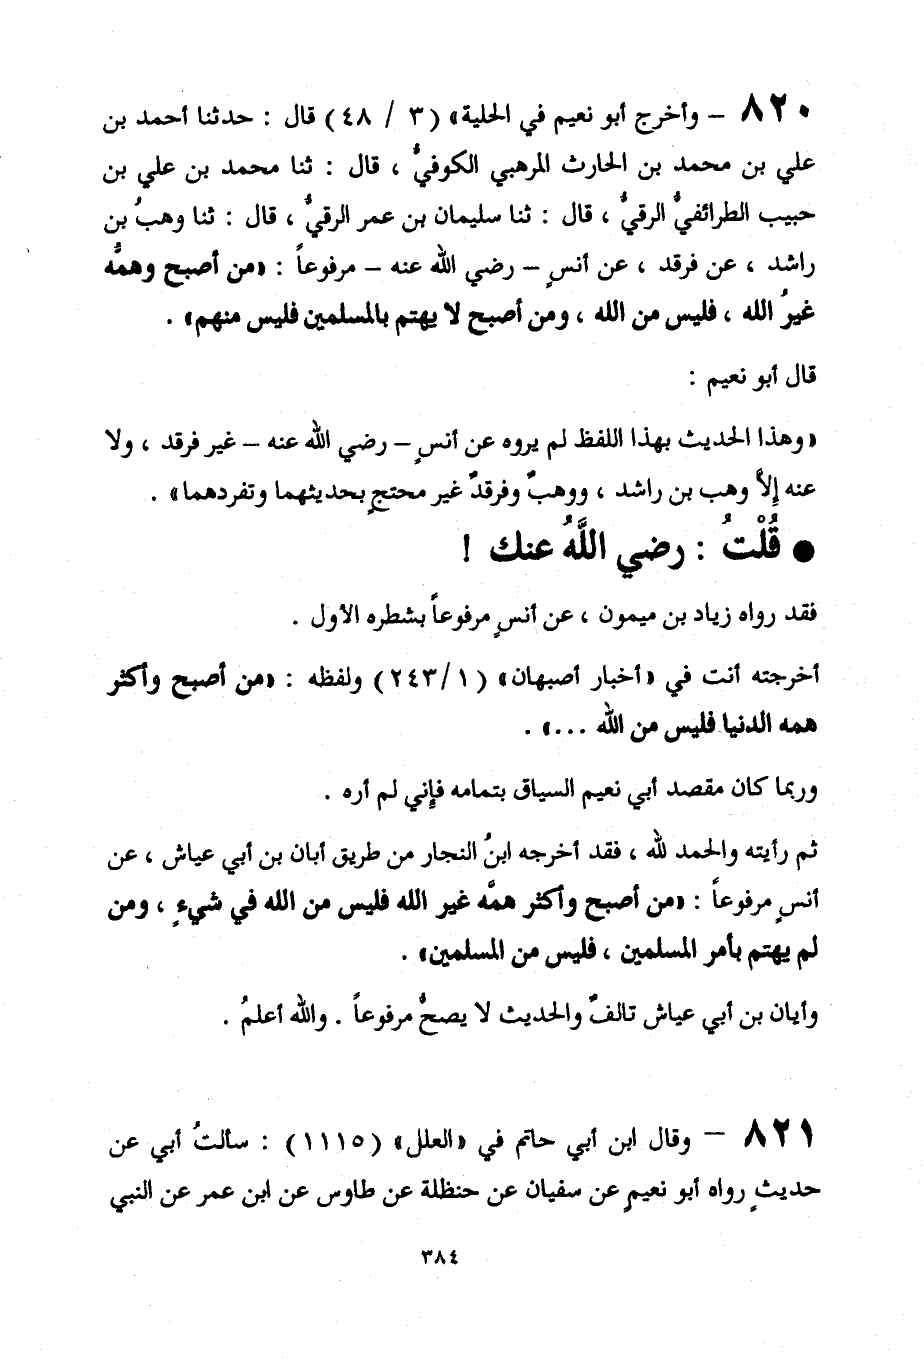 ٨٢٠ – وأخرج أبو نعيم في الحلية» (٣ / ٤٨) قال : حدثنا أحمد بن
علي بن محمد بن الحارث المرهبي الكوفيُّ ، قال : ثنا محمد بن علي بن
حبيب الطرائفيُّ الرقيُّ ، قال : ثنا سليمان بن عمر الرقيُّ ، قال : ثنا وهبُ بن
راشد ، عن فرقد ، عن أنسٍ – رضي الله عنه – مرفوعاً : «من أصبح وهمُّه
غيرُ الله ، فليس من الله ، ومن أصبح لا يهتم بالمسلمين فليس منهم» .
قال أبو نعيم :
«وهذا الحديث بهذا اللفظ لم يروه عن أنسٍ – رضي الله عنه – غير فرقد ، ولا
عنه إلاَّ وهب بن راشد ، ووهبٌ وفرقدٌ غير محتجٍ بحديثهما وتفردهما» .
● قُلْتُ : رضي اللَّهُ عنك !
فقد رواه زياد بن ميمون ، عن أنسٍ مرفوعاً بشطره الأول .
أخرجته أنت في «أخبار أصبهان» (١/٢٤٣) ولفظه : «من أصبح وأكثر
همه الدنيا فليس من الله ...» .
وربما كان مقصد أبي نعيم السياق بتمامه فإني لم أره .
ثم رأيته والحمد لله ، فقد أخرجه ابنُ النجار من طريق أبان بن أبي عياش ، عن
أنسٍ مرفوعاً : «من أصبح وأكثر همَّه غير الله فليس من الله في شيءٍ ، ومن
لم يهتم بأمر المسلمين ، فليس من المسلمين» .
وأيان بن أبي عياش تالفٌ والحديث لا يصحُّ مرفوعاً . والله أعلمُ .
٨٢١ – وقال ابن أبي حاتم في «العلل» (١١١٥) : سألتُ أبي عن
حديثٍ رواه أبو نعيمٍ عن سفيان عن حنظلة عن طاوس عن ابن عمر عن النبي
٣٨٤